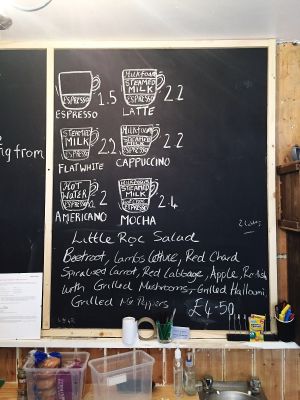 ESPRESSO
ESPRESSO
1.5
MILK foam
STEAMED
MILK
ESPRESSO
LATTE
2.2
STEAMED
MILK
ESPRESSO
FLAT WHITE
2.2
MILK foam
STEAMED
MILK
ESPRESSO
CAPPUCCINO
2.2
HOT
WATER
ESPRESSO
AMERICANO
2
STEAMED
MILK
ESPRESSO
MOCHA
2.4
ng from
Little Roc Salad
Beetroot, Lambs Lettuce, Red Chard
Spiralised Carrot, Red Cabbage, Apple, Radish
with Grilled Mushrooms, Grilled Halloumi
Grilled Mix Peppers
£4.50